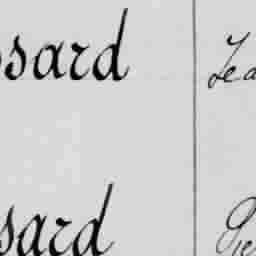 ssard Lea
ssard Pie